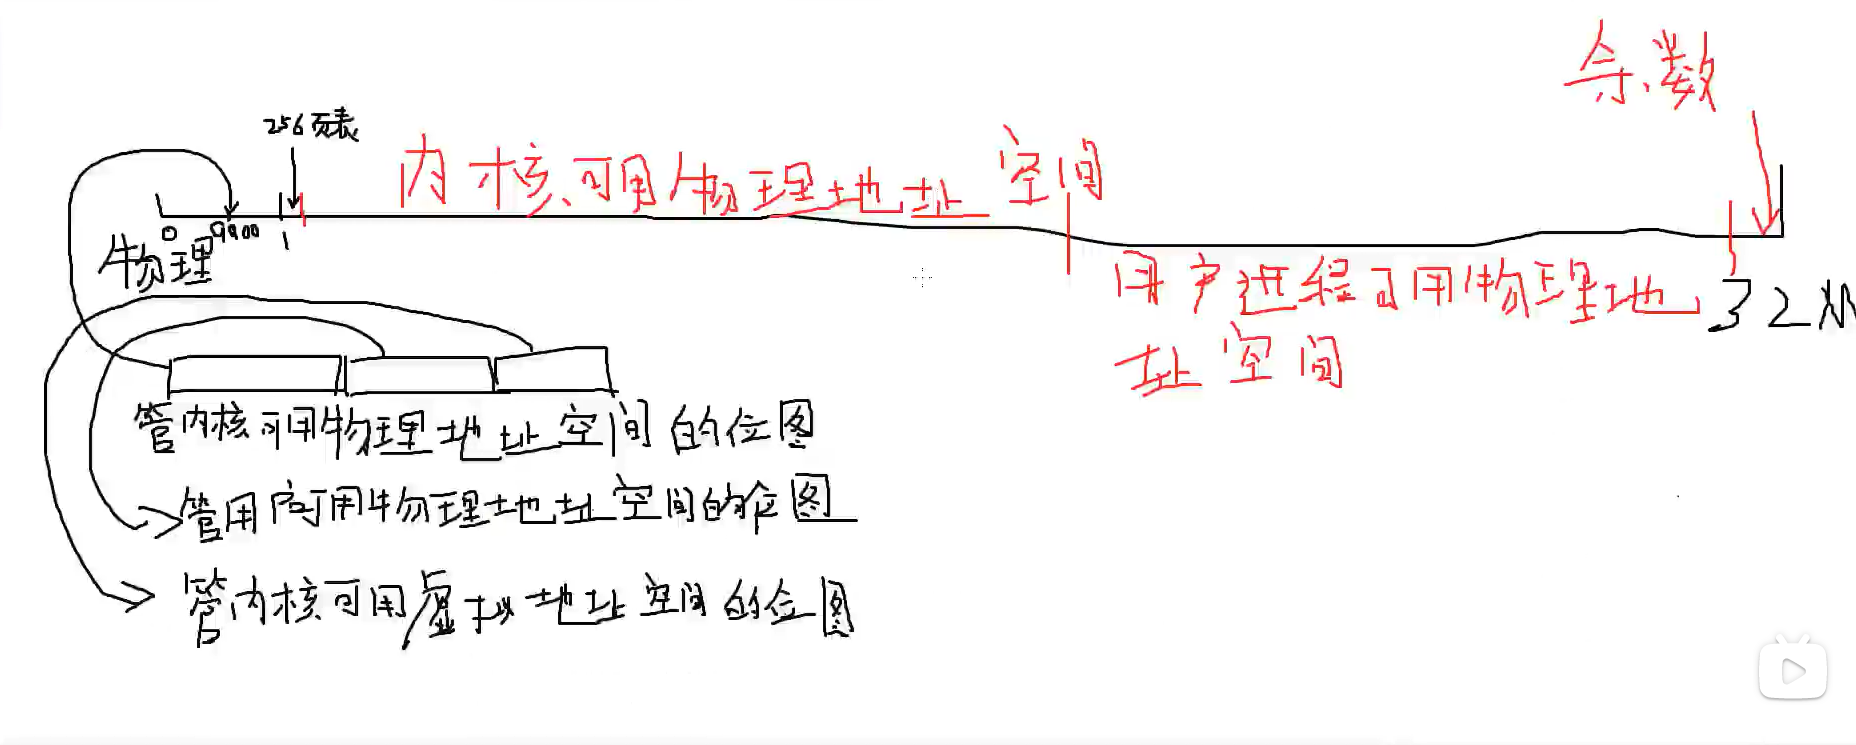 余数
256页表
内核可用物理地址空间
0 9A00 1
物理
用户进程可用物理地址空间
32M
管内核可用物理地址空间的位图
管用户可用物理地址空间的位图
管内核可用虚拟地址空间的位图